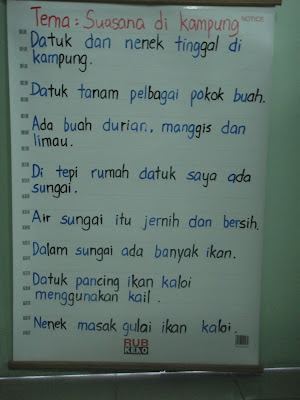 Tema : Suasana di kampung
NOTICE
Datuk dan nenek tinggal di
kampung.
Datuk tanam pelbagai pokok buah.
Ada buah durian, manggis dan
limau.
Di tepi rumah datuk saya ada
sungai.
Air sungai itu jernih dan bersih.
Dalam sungai ada banyak ikan.
Datuk pancing ikan kaloi
menggunakan kail.
Nenek masak gulai ikan kaloi.